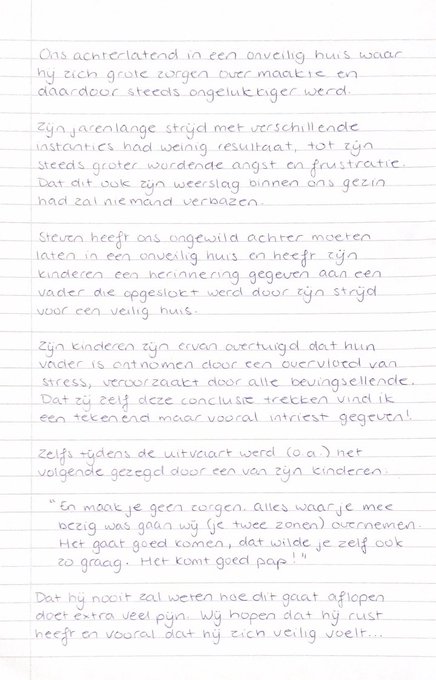 Ons achterlatend in een onveilig huis waar
hij zich grote zorgen over maakte en
daardoor steeds ongelukkiger werd.
Zijn jarenlange strijd met verschillende
instanties had weinig resultaat, tot zijn
steeds groter wordende angst en frustratie.
Dat dit ook zijn weerslag binnen ons gezin
had zal niemand verbazen.
Steven heeft ons ongewild achter moeten
laten in een onveilig huis en heeft zijn
kinderen een herinnering gegeven aan een
vader die opgeslokt werd door zijn strijd
voor een veilig huis.
Zijn kinderen zijn ervan overtuigd dat hun
vader is ontnomen door een overvloed van
stress, veroorzaakt door alle bevingsellende.
Dat zij zelf deze conclusie trekken vind ik
een tekenend maar vooral intriest gegeven!
Zelfs tijdens de uitvaart werd (o.a.) het
volgende gezegd door een van zijn kinderen.
"En maak je geen zorgen. alles waar je mee
bezig was gaan wij (je twee zonen) overnemen.
Het gaat goed komen, dat wilde je zelf ook
zo graag. Het komt goed pap!"
Dat hij nooit zal weten hoe dit gaat aflopen
doet extra veel pijn. Wij hopen dat hij rust
heeft en vooral dat hij zich veilig voelt...